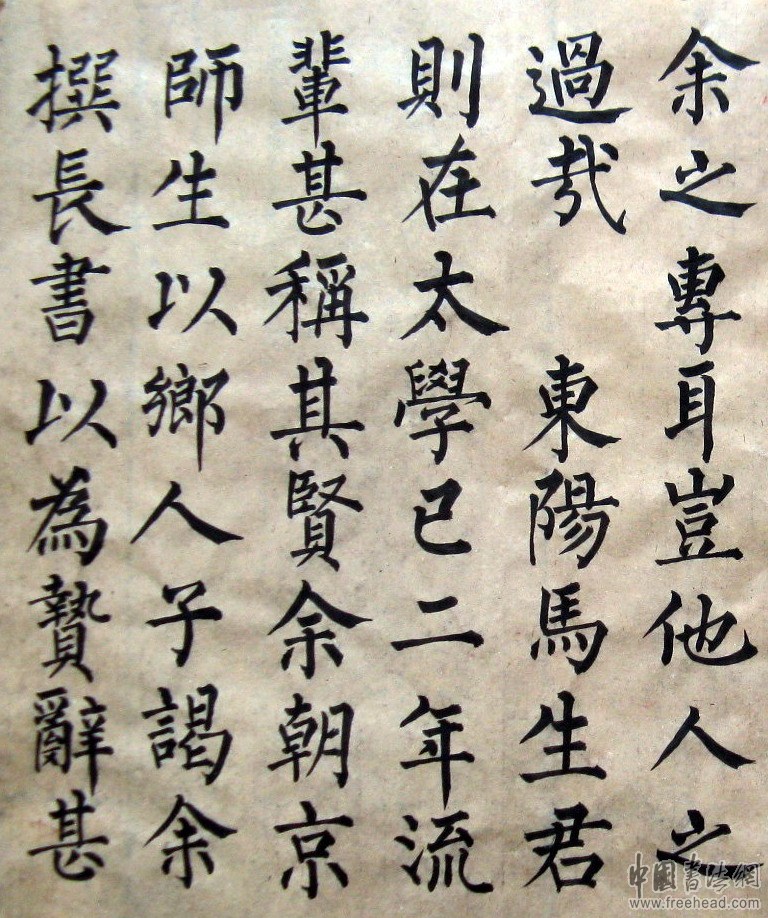 余之專耳豈他人之
過哉　東陽馬生君
則在太學已二年流
輩甚稱其賢余朝京
師生以鄉人子謁余
撰長書以為贄辭甚
中國書法網
www.freehead.com